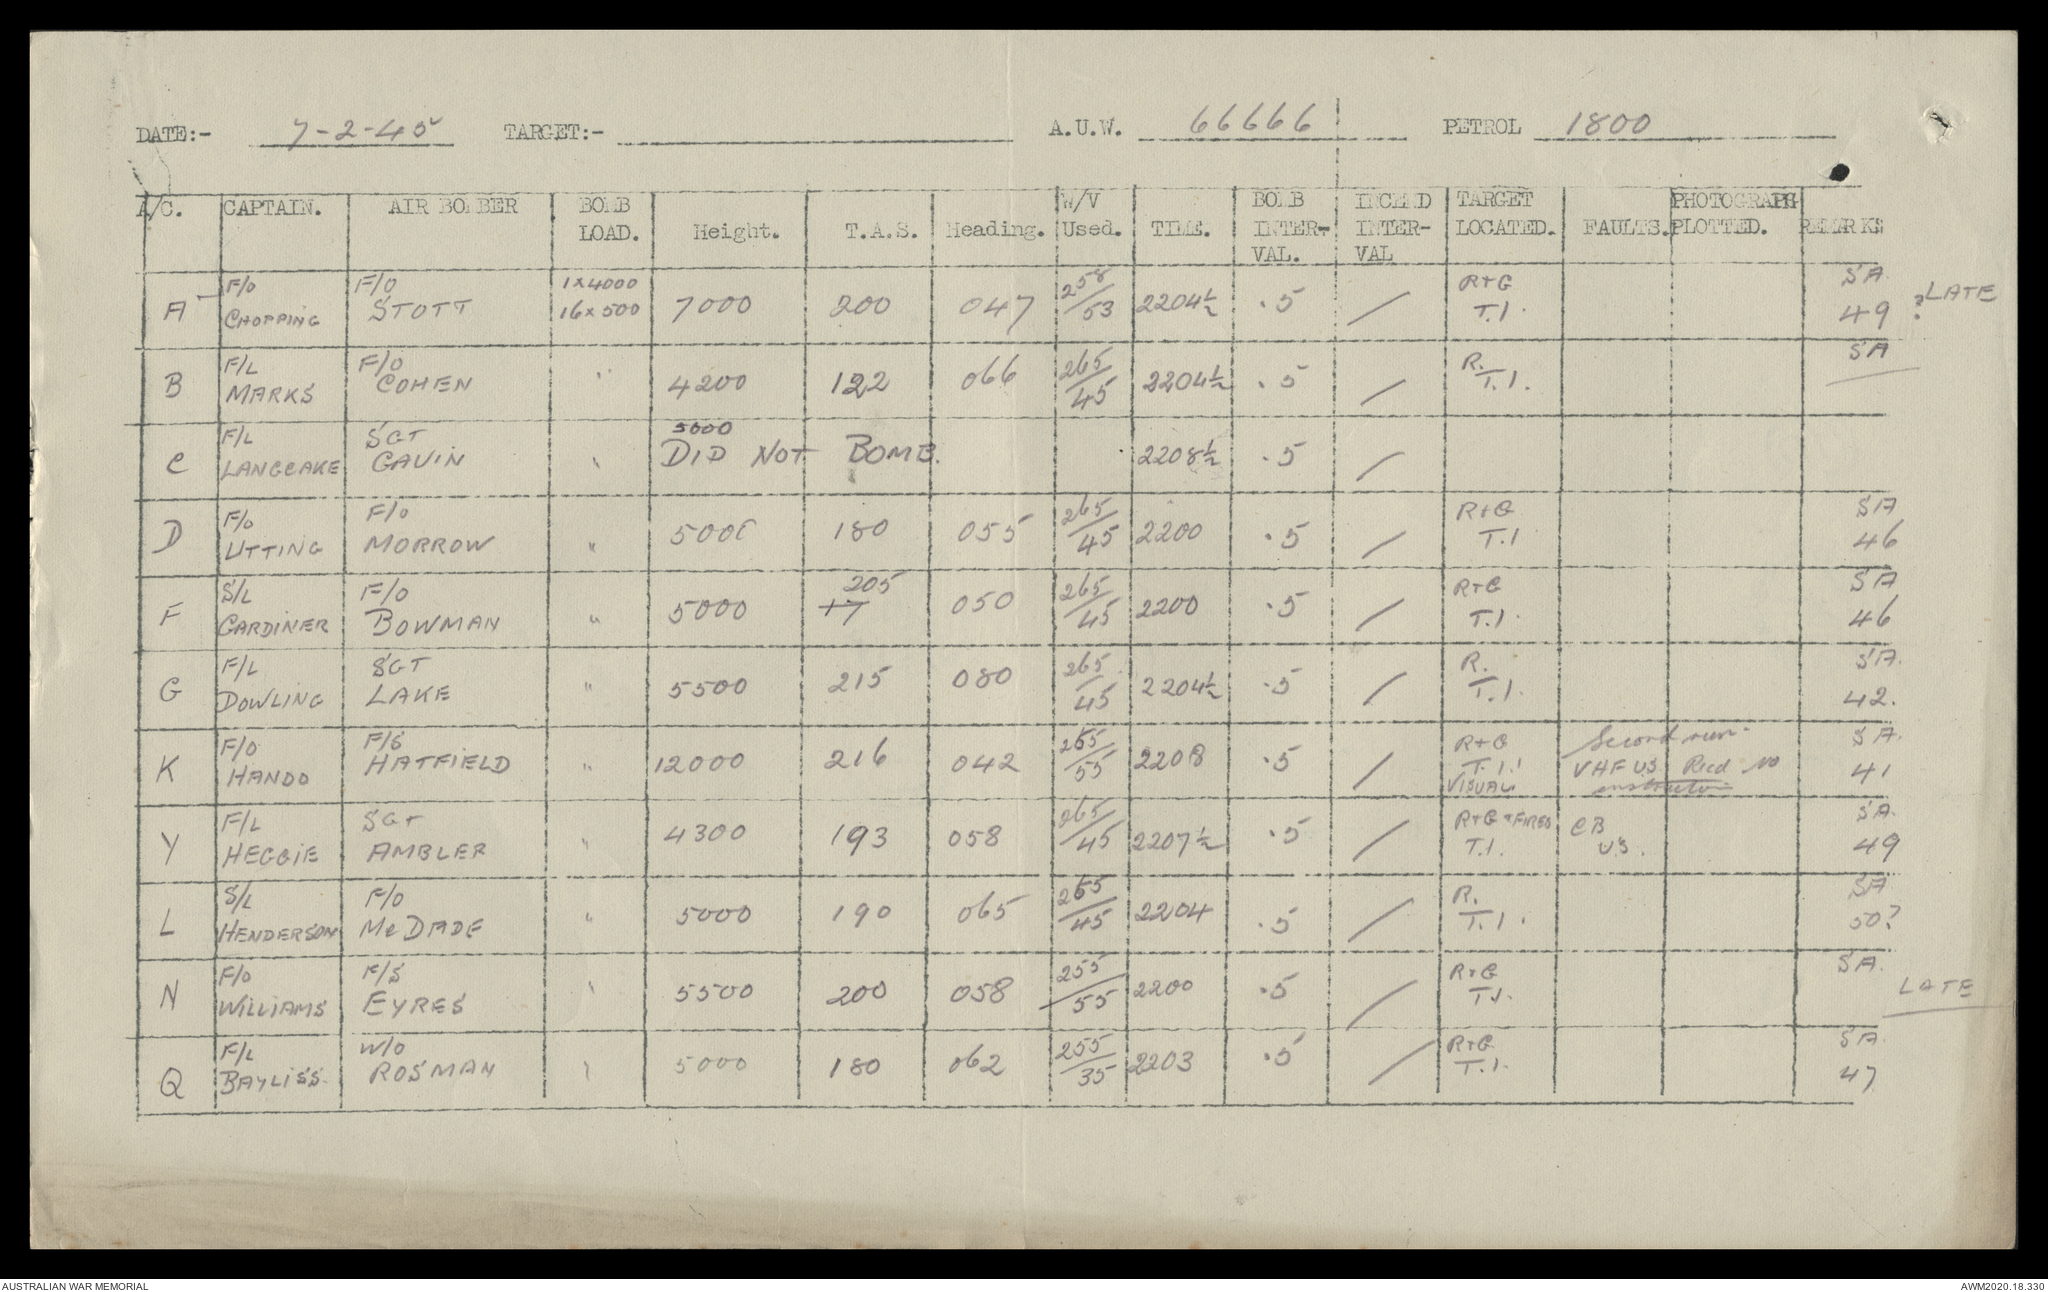 DATE:- 7-2-45 TARGET:- A.U.W. 66666 PETROL 1800
A/C. CAPTAIN. AIR BOMBER BOMB LOAD. Height. T.A.S. Heading. W/V Used. TIME. BOMB INTER- VAL. INCEND INTER- VAL TARGET LOCATED. FAULTS. PHOTOGRAPH PLOTTED. REMARKS
A F/O CHOPPING F/O STOTT 1x4000 16x500 7000 200 047 258/53 2204½ .5 / R+G T.I. SA 49 ? LATE
B F/L MARKS F/O COHEN " 4200 122 066 265/45 2204½ .5 / R. T.I. SA
C F/L LANGCAKE SGT GAVIN " 5000 DID NOT BOMB. 2208½ .5 /
D F/O UTTING F/O MORROW " 5000 180 055 265/45 2200 .5 / R+G T.I SA 46
F S/L GARDINER F/O BOWMAN " 5000 205 +7 050 265/45 2200 .5 / R+G T.I. SA 46
G F/L DOWLING SGT LAKE " 5500 215 080 265/45 2204½ .5 / R. T.I. SA. 42.
K F/O HANDO F/S HATFIELD " 12000 216 042 255/55 2208 .5 / R+G T.I. VISUAL Second run. VHF US Recd no SA. 41
Y F/L HEGGIE SGT AMBLER " 4300 193 058 265/45 2207½ .5 / R+G+FIRES T.I. CB US. SA. 49
L S/L HENDERSON F/O McDADE " 5000 190 065 265/45 2204 .5 / R. T.I. SA 50?
N F/O WILLIAMS F/S EYRES " 5500 200 058 255/55 2200 .5 / R+G T.I. SA. LATE
Q F/L BAYLISS. W/O ROSMAN " 5000 180 062 255/35 2203 .5 / R+G. T.I. SA. 47
AUSTRALIAN WAR MEMORIAL AWM2020.18.330